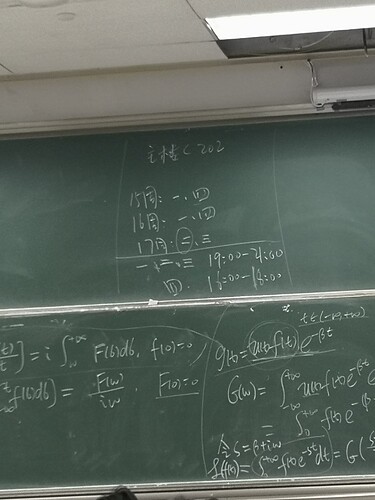 主楼C 202
15周: 一、四
16周: 一、四
17周: 二、三
一、二、三 19:00-21:00
四. 16:00-18:00
] = i ∫ F(6)d6, f(0)=0
f(6)d6) = F(w)/iw, F(0)=0
t∈(-∞,+∞)
g(t)=(u(t)f(t))e^-βt
G(w) = ∫_-∞^+∞ u(t)f(t)e^-βt e
= ∫_0^+∞ f(t)e^-(β
令 S=β+iw
f(t)e^-st dt = G(